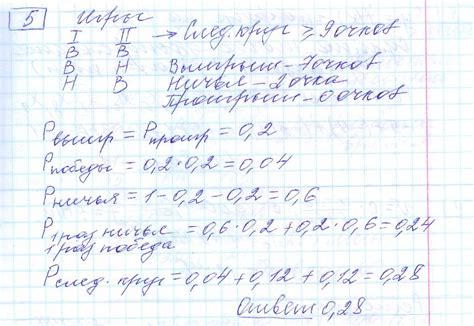 5 Игры
I II → След. круг ≥ 9 очков
В В
В Н Выигрыш – 7 очков
Н В Ничья – 2 очка
Проигрыш – 0 очков
Рвыигр = Рпроигр = 0,2
Рпобеды = 0,2 · 0,2 = 0,04
Рничья = 1 – 0,2 – 0,2 = 0,6
Р1 раз ничья = 0,6 · 0,2 + 0,2 · 0,6 = 0,24
1 раз победа
Рслед. круг = 0,04 + 0,12 + 0,12 = 0,28
Ответ 0,28